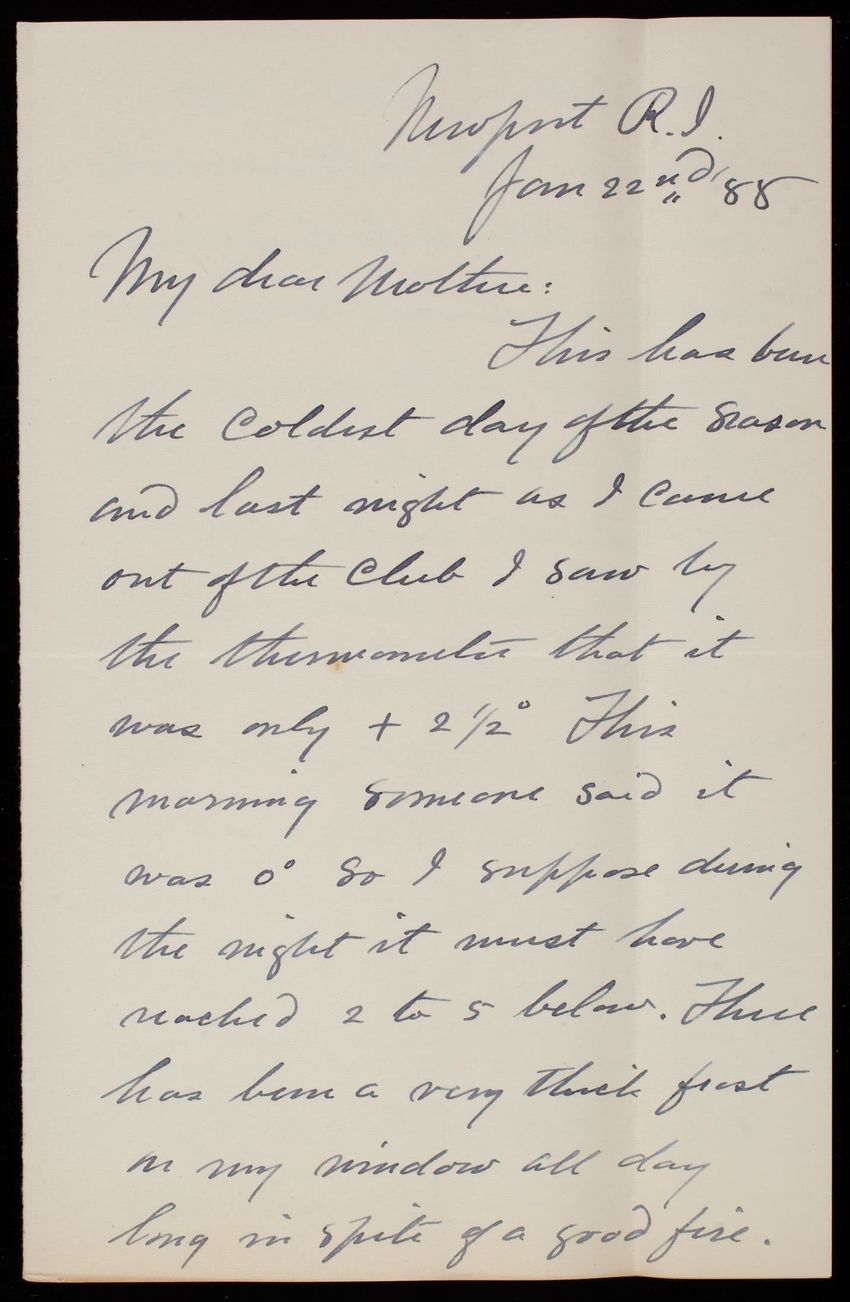 Newport R.I.
Jan 22nd, 88
My dear Mother:
This has been
the coldest day of the season
and last night as I came
out of the Club I saw by
the thermometer that it
was only + 2 1/2° This
morning someone said it
was 0° So I suppose during
the night it must have
reached 2 to 5 below. There
has been a very thick frost
on my window all day
long in spite of a good fire.